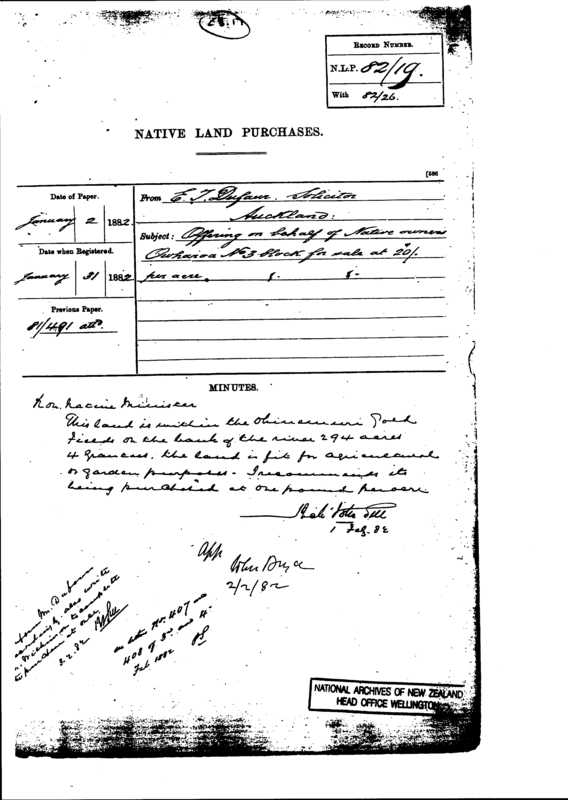 RECORD NUMBER.
N.L.P. 82/19.
With 82/26.
NATIVE LAND PURCHASES.
[188
Date of Paper.
January 2 1882
Date when Registered.
January 31 1882
Previous Paper.
81/491 attd.
From E. T. Dufaur. Solicitor
Auckland:
Subject: Offering on behalf of Native owners
Owharoa No 3 block for sale at 20/-
per acre.
MINUTES.
Hon. Native Minister
This land is within the Ohinemuri Gold
Fields on the bank of the river 294 acres
4 Grantees. The land is fit for agricultural
or garden purposes - I recommend its
being purchased at one pound per acre
1 Feb. 82
App
John Bryce
2/2/82
Inform Mr. Dufaur
accordingly also write
Mr. Wilkinson to complete
purchase at once
3.2.82
No. 407 and
408 of 3rd and 4
Feb. 1882
NATIONAL ARCHIVES OF NEW ZEALAND
HEAD OFFICE WELLINGTON